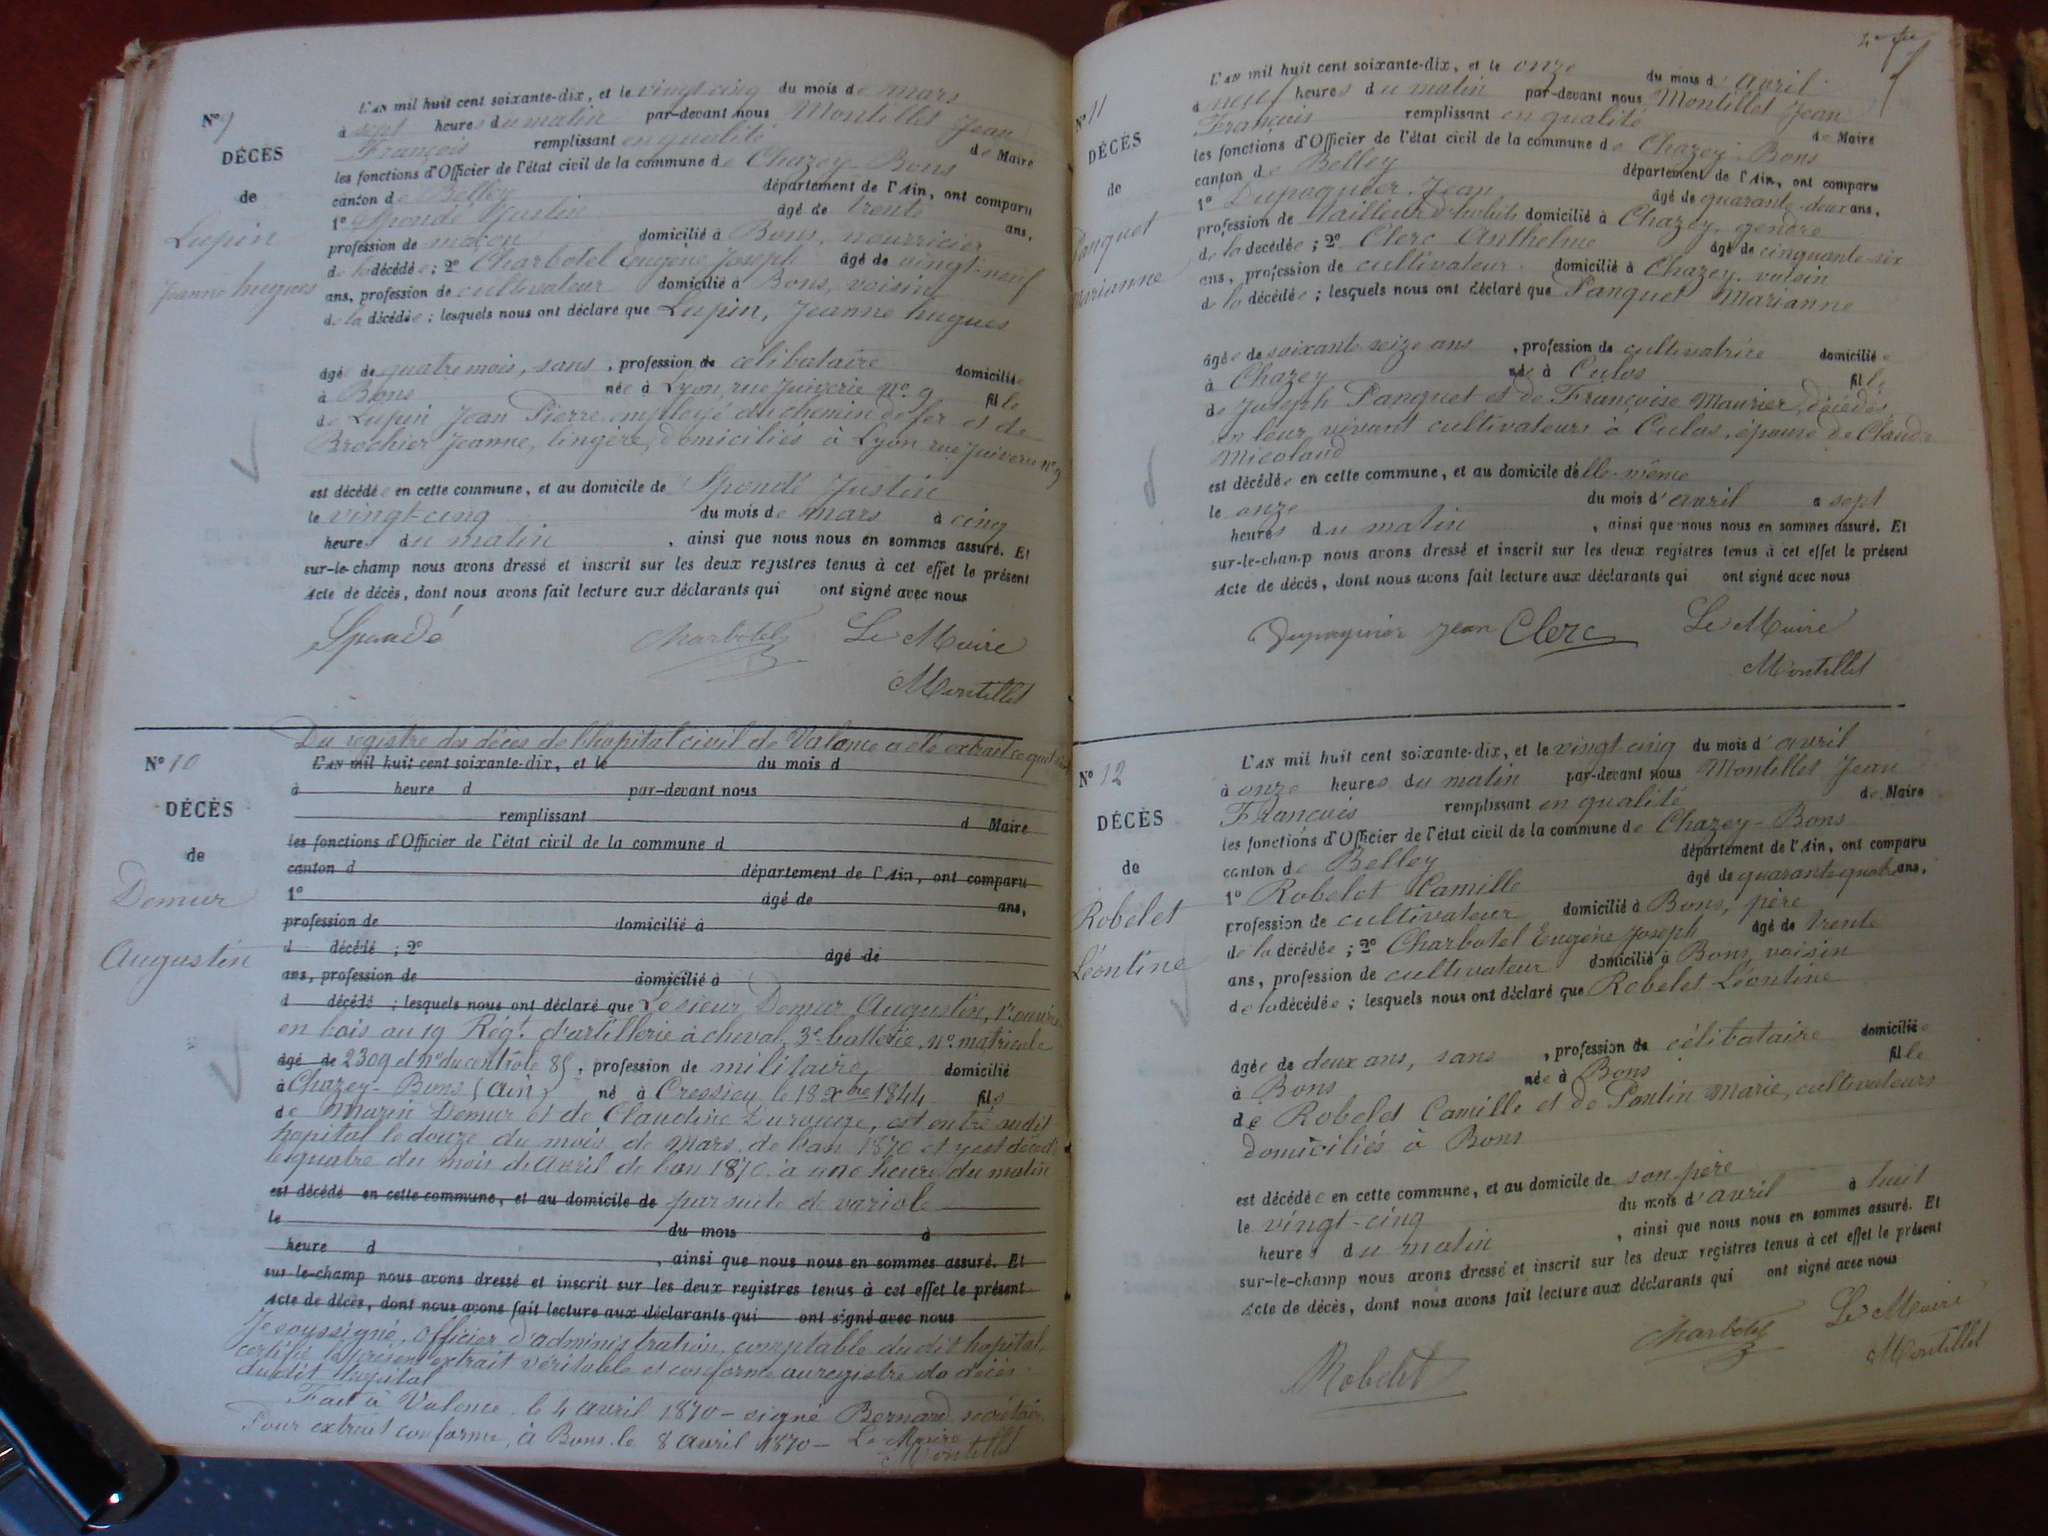 N° 9
DÉCÈS
de
Lupin
Jeanne hugues
L'AN mil huit cent soixante-dix, et le vingt-cinq du mois de mars
à sept heures du matin par-devant nous Montillet Jean
François remplissant en qualité de Maire
les fonctions d'Officier de l'état civil de la commune de Chazey-Bons
canton de Belley département de l'Ain, ont comparu
1° Spondé Justin âgé de trente ans,
profession de maçon domicilié à Bons, nourricier
de la décédée ; 2° Charbotel Eugène Joseph âgé de vingt-neuf
ans, profession de cultivateur domicilié à Bons, voisin
de la décédée ; lesquels nous ont déclaré que Lupin, Jeanne hugues
âgé de quatre mois, sans , profession de célibataire domiciliée
à Bons née à Lyon, rue Juiverie N° 9 fille
de Lupin Jean Pierre employé du chemin de fer et de
Brochier Jeanne, lingère, domiciliés à Lyon rue Juiverie n° 9
est décédée en cette commune, et au domicile de Spondé Justin
le vingt-cinq du mois de mars à cinq
heures du matin , ainsi que nous nous en sommes assuré. Et
sur-le-champ nous avons dressé et inscrit sur les deux registres tenus à cet effet le présent
Acte de décès, dont nous avons fait lecture aux déclarants qui ont signé avec nous
Spondé Charbotel Le Maire
Montillet
N° 10
DÉCÈS
de
Demur
Augustin
Du registre des décès de l'hopital civil de Valence a été extrait ce qui suit
L'AN mil huit cent soixante-dix, et le du mois d
à heure d par-devant nous
remplissant d Maire
les fonctions d'Officier de l'état civil de la commune d
canton d département de l'Ain, ont comparu
1° âgé de ans,
profession de domicilié à
d décédé ; 2° âgé de
ans, profession de domicilié à
d décédé ; lesquels nous ont déclaré que Le sieur Demur Augustin, 1er ouvrier
en bois au 19 Régt. d'artillerie à cheval, 3e batterie, n° matricule
âgé de 2309 et n° du contrôle 85, profession de militaire domicilié
à Chazey-Bons (Ain) né à Cressieu le 18 Xbre 1844 fils
de Marin Demur et de Claudine Durouge, est entré audit
hopital le douze du mois de Mars de l'an 1870 et y est décédé
le quatre du mois de Avril de l'an 1870 à une heure du matin
est décédé en cette commune, et au domicile de par suite de variole
le du mois d
heure d , ainsi que nous nous en sommes assuré. Et
sur-le-champ nous avons dressé et inscrit sur les deux registres tenus à cet effet le présent
Acte de décès, dont nous avons fait lecture aux déclarants qui ont signé avec nous
Je soussigné, Officier d'administration comptable du dit hopital,
certifie le présent extrait véritable et conforme au registre de décès
dudit hopital
Fait à Valence le 4 avril 1870 – signé Bernard secrétaire
Pour extrait conforme, à Bons le 8 avril 1870 – Le Maire
Montillet
N° 11
DÉCÈS
de
Panquet
Marianne
L'AN mil huit cent soixante-dix, et le onze du mois d'avril
à neuf heures du matin par-devant nous Montillet Jean
François remplissant en qualité de Maire
les fonctions d'Officier de l'état civil de la commune de Chazey-Bons
canton de Belley département de l'Ain, ont comparu
1° Dupaquier Jean âgé de quarante-deux ans,
profession de tailleur d'habits domicilié à Chazey, gendre
de la décédée ; 2° Clerc Anthelme âgé de cinquante-six
ans, profession de cultivateur domicilié à Chazey, voisin
de la décédée ; lesquels nous ont déclaré que Panquet Marianne
âgée de soixante seize ans , profession de cultivatrice domiciliée
à Chazey née à Culoz fille
de Joseph Panquet et de Françoise Maurier, décédés
en leur vivant cultivateurs à Culoz, épouse de Claude
Micoland
est décédée en cette commune, et au domicile d'elle-même
le onze du mois d'avril à sept
heures du matin , ainsi que nous nous en sommes assuré. Et
sur-le-champ nous avons dressé et inscrit sur les deux registres tenus à cet effet le présent
Acte de décès, dont nous avons fait lecture aux déclarants qui ont signé avec nous
Dupaquier Jean Clerc Le Maire
Montillet
N° 12
DÉCÈS
de
Robelet
Léontine
L'AN mil huit cent soixante-dix, et le vingt-cinq du mois d'avril
à onze heures du matin par-devant nous Montillet Jean
François remplissant en qualité de Maire
les fonctions d'Officier de l'état civil de la commune de Chazey-Bons
canton de Belley département de l'Ain, ont comparu
1° Robelet Camille âgé de quarante-quatre ans,
profession de cultivateur domicilié à Bons, père
de la décédée ; 2° Charbotel Eugène Joseph âgé de trente
ans, profession de cultivateur domicilié à Bons, voisin
de la décédée ; lesquels nous ont déclaré que Robelet Léontine
âgée de deux ans, sans , profession de célibataire domiciliée
à Bons née à Bons fille
de Robelet Camille et de Pontin Marie, cultivateurs
domiciliés à Bons
est décédée en cette commune, et au domicile de son père
le vingt-cinq du mois d'avril à huit
heures du matin , ainsi que nous nous en sommes assuré. Et
sur-le-champ nous avons dressé et inscrit sur les deux registres tenus à cet effet le présent
Acte de décès, dont nous avons fait lecture aux déclarants qui ont signé avec nous
Robelet Charbotel Le Maire
Montillet